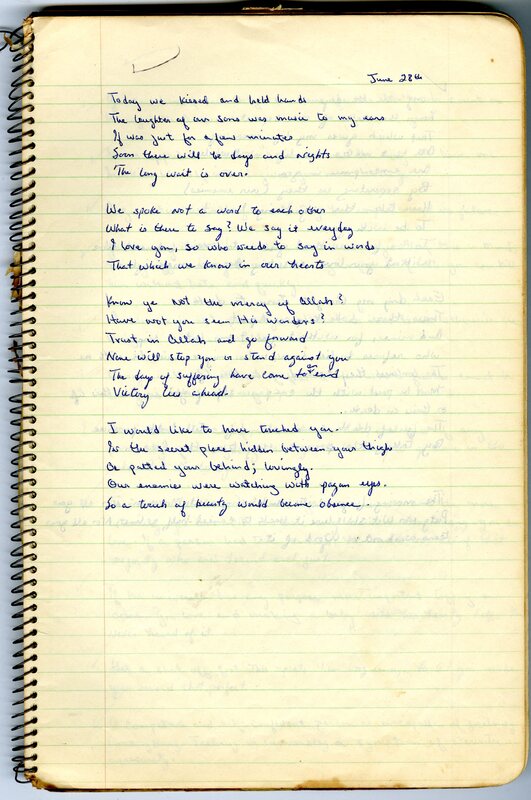 June 28th
Today we kissed and held hands
The laughter of our sons was music to my ears
If was just for a few minutes
Soon there will be days and nights
The long wait is over.
We spoke not a word to each other
What is there to say? We say it everyday
I love you, so who needs to say in words
That which we know in our hearts
Know ye not the mercy of Allah?
Have not you seen His wonders?
Trust in Allah and go forward
None will stop you or stand against you
The days of suffering have come to an end
Victory lies ahead.
I would like to have touched you.
In the secret place hidden between your thighs
Or patted your behind; lovingly.
Our enemies were watching with pagan eyes.
So a touch of beauty would become obscene.